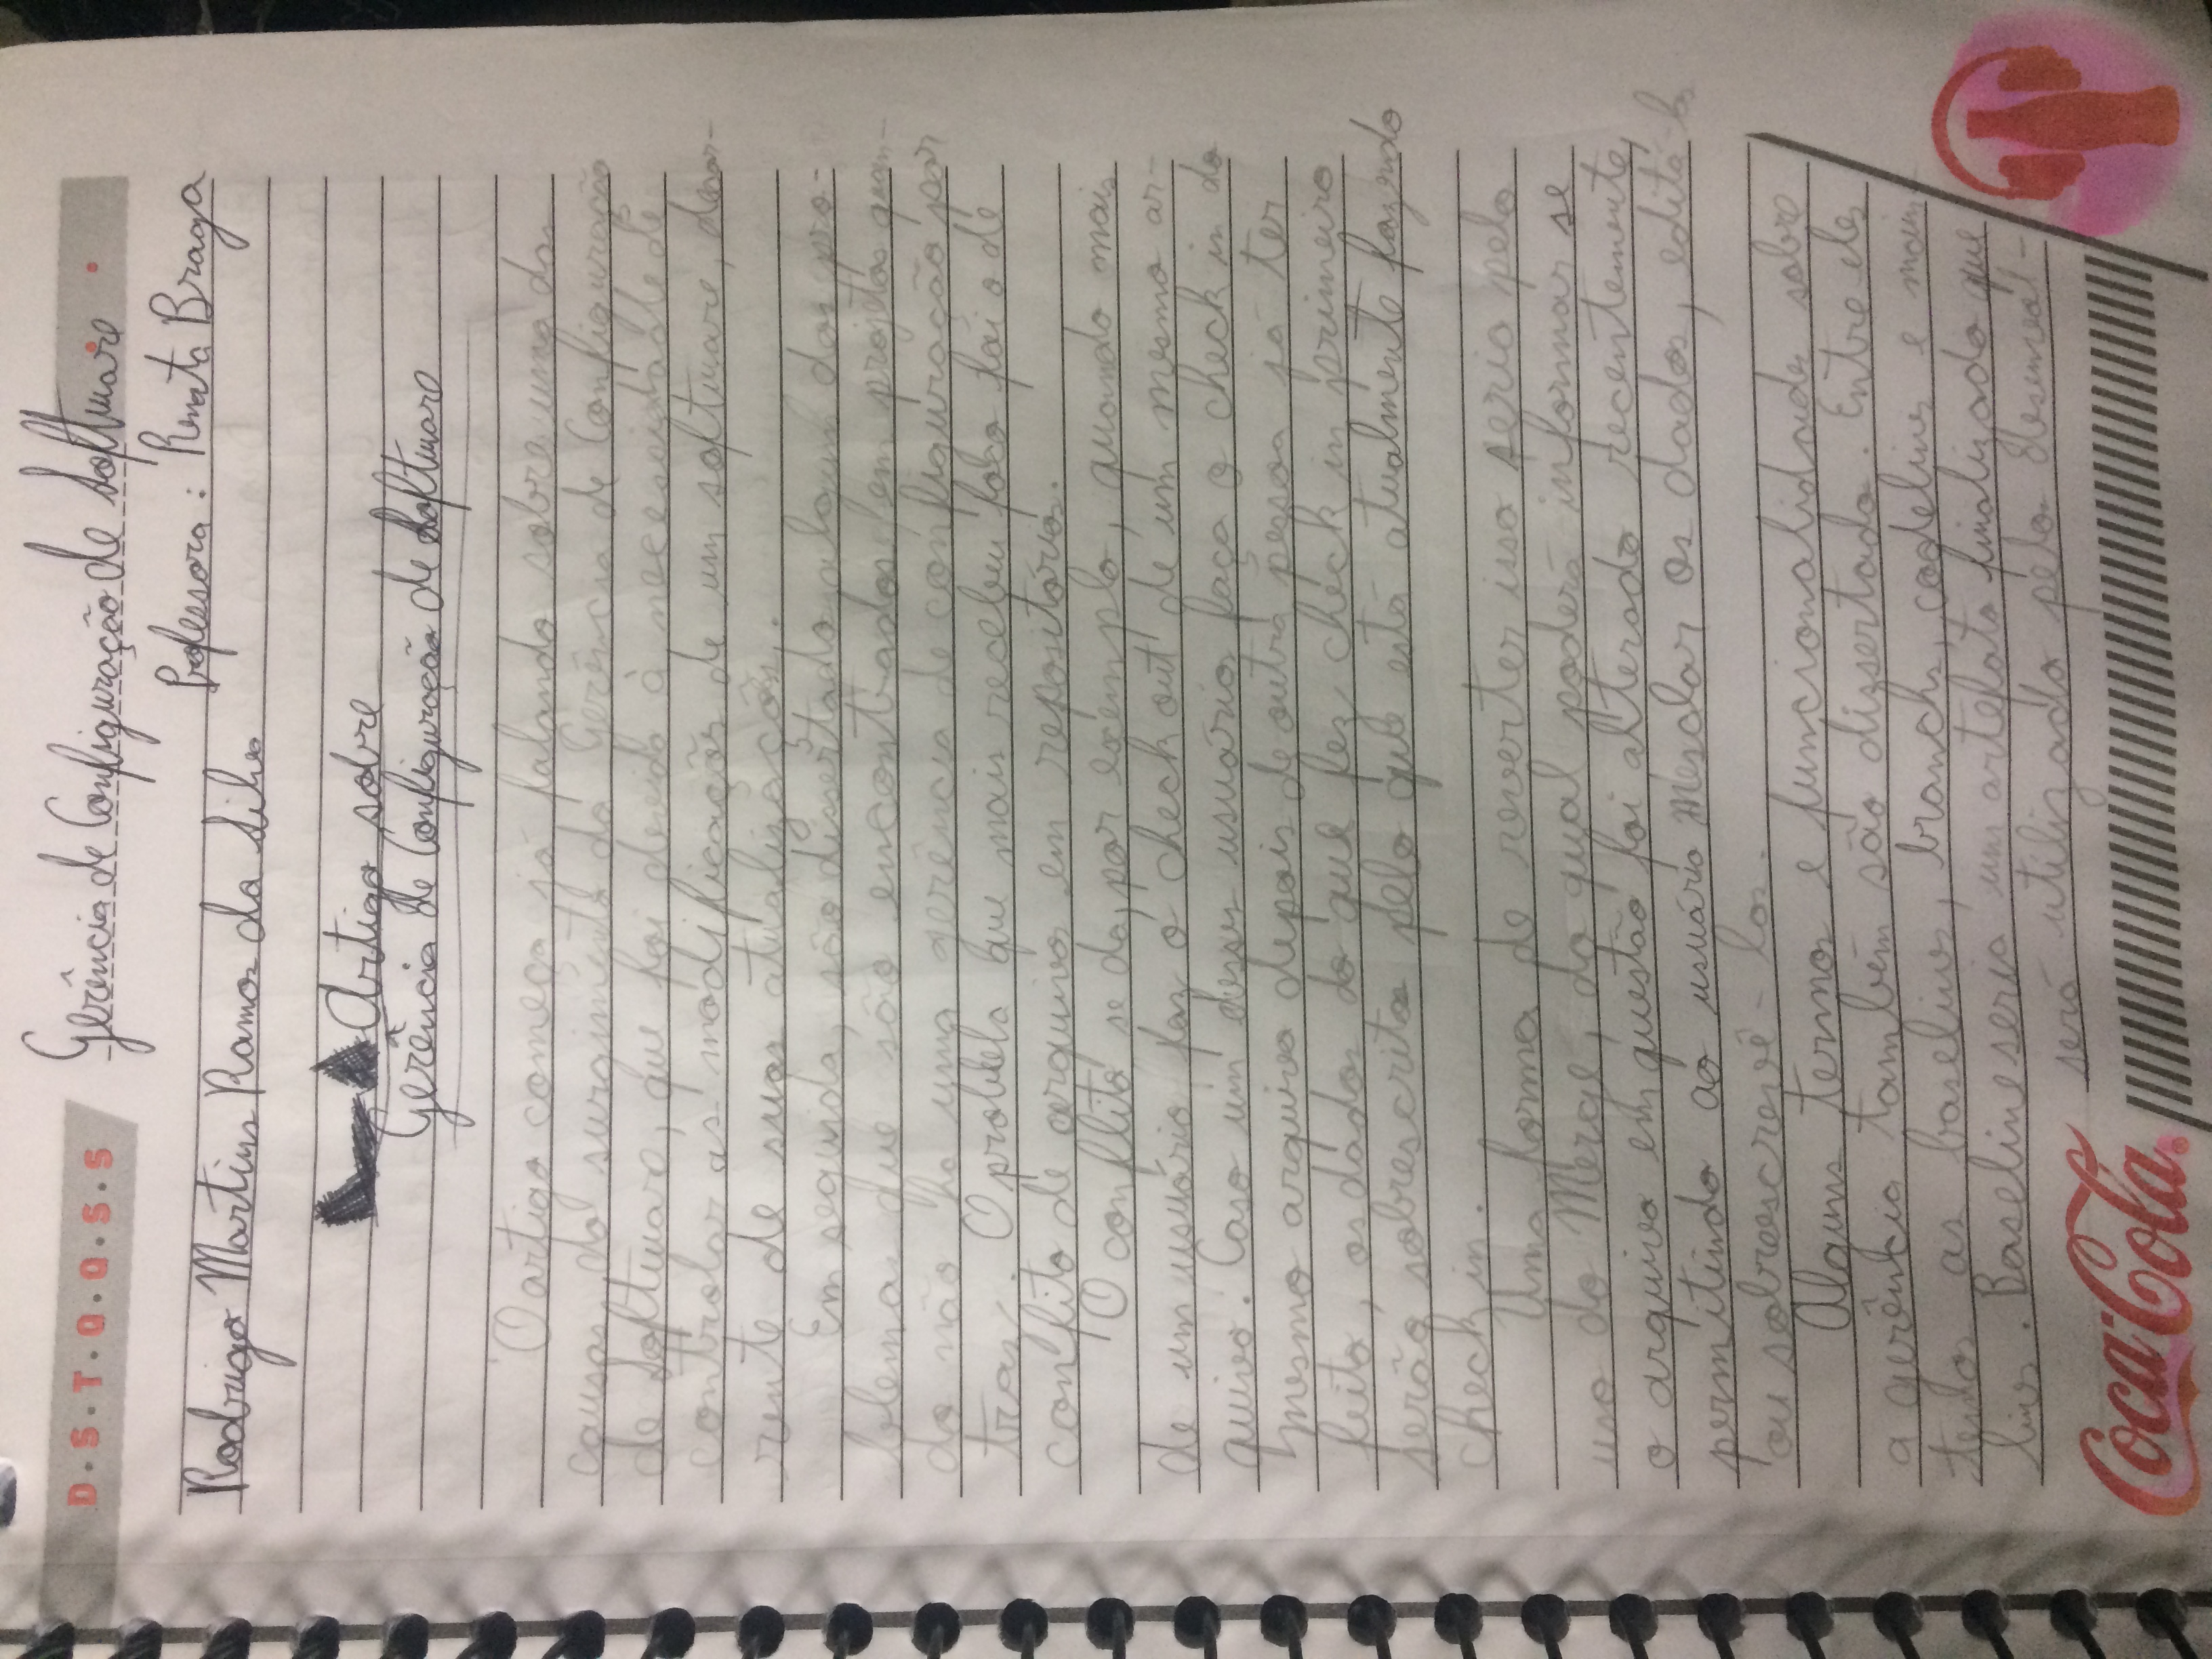 D.S.T.Q.Q.S.S
Gerência de Configuração de Software
Professora: Renata Braga
Rodrigo Martins Ramos da Silva
Artigo sobre
Gerência de Configuração de Software
O artigo começa já falando sobre uma das
causas do surgimento da Gerência de Configuração
de Software, que foi devido à necessidade de
controlar as modificações de um software, decor-
rente de suas atualizações.
Em seguida, são dissertado algum dos pro-
blemas que são encontrados em projetos quan-
do não ha uma gerência de configuração por
traz. O problela que mais recebeu foco foi o de
confito de arquivos em repositórios.
O conflito se da, por exemplo, quando mais
de um usuário faz o check out de um mesmo ar-
quivo. Caso um desses usuários faça o check in do
mesmo arquivo depois de outra pessoa já ter
feito, os dados do que fez check in primeiro
serão sobrescritos pelo que está atualmente fazendo
check in.
Uma forma de reverter isso seria pelo
uso do Merge, do qual poderá informar se
o arquivo em questão foi alterado recentemente,
permitindo ao usuário mesclar os dados, editá-los
ou sobreescrevê-los.
Alguns termos e funcionalidades sobre
a gerência também são dissertado. Entre eles
temos as baselines, branchs, codelines e main-
lines. Baseline seria um artefato finalizado que
será utilizado pelo desenvol-
Coca-Cola